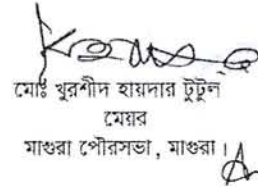 মোঃ খুরশীদ হায়দার টুটুল
মেয়র
মাগুরা পৌরসভা, মাগুরা।